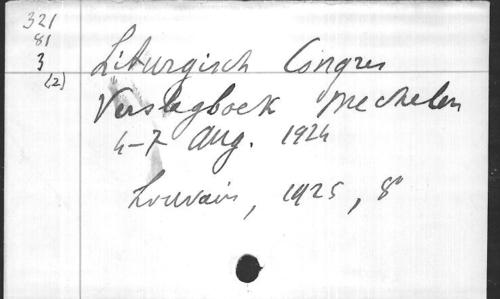 321
81
3
(2)
Liturgisch Congres
Verslagboek Mechelen
4-7 Aug. 1924
Louvain, 1925, 8°